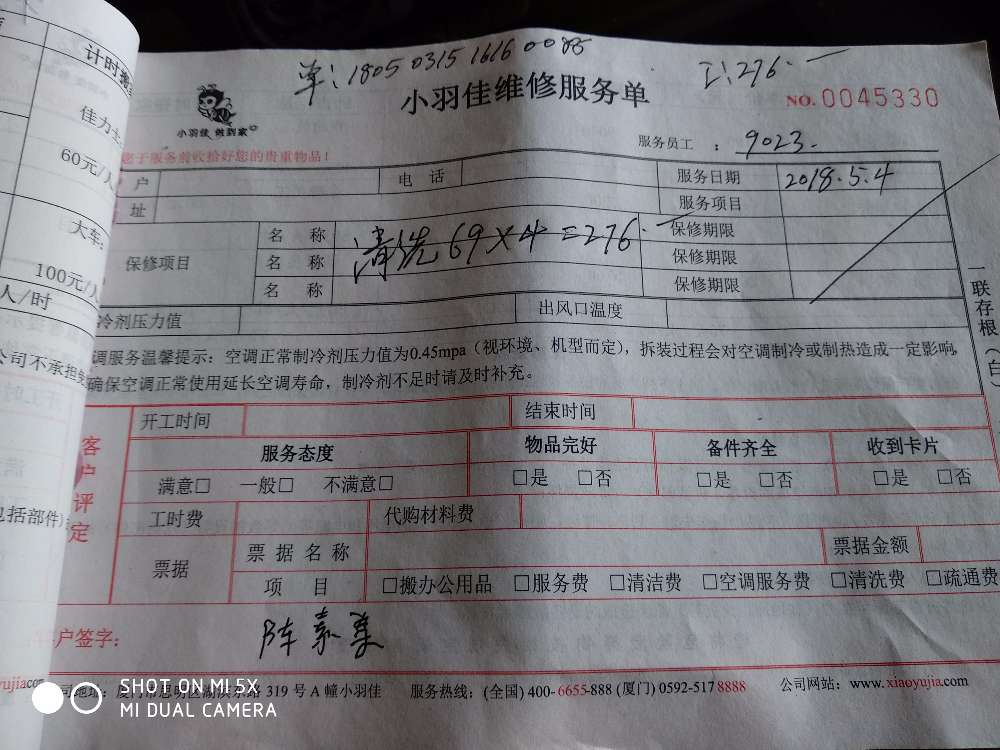 单：1805 0315 1616 0085
工:276.一
小羽佳维修服务单
NO. 0045330
小羽佳 做到家
服务员工 ： 9023.
您于服务前收拾好您的贵重物品！
户
电 话
服务日期 2018.5.4
址
服务项目
保修项目
名 称 清洗 69×4=276.一 保修期限
名 称 保修期限
名 称 保修期限
冷剂压力值
出风口温度
调服务温馨提示：空调正常制冷剂压力值为0.45mpa（视环境、机型而定），拆装过程会对空调制冷或制热造成一定影响，
确保空调正常使用延长空调寿命，制冷剂不足时请及时补充。
一联存根（白）
客户评定
开工时间
结束时间
服务态度 物品完好 备件齐全 收到卡片
满意□ 一般□ 不满意□ □是 □否 □是 □否 □是 □否
工时费
代购材料费
票据
票 据 名 称
票据金额
项 目 □搬办公用品 □服务费 □清洁费 □空调服务费 □清洗费 □疏通费
户签字：
司地址：厦门市思明区湖滨东路 319 号 A 幢小羽佳 服务热线：(全国) 400-6655-888 (厦门) 0592-517 8888 公司网站：www.xiaoyujia.com
计时搬
佳力士
60元/人
大车：
100元/人
人/时
公司不承担
包括部件)
yujia.com
SHOT ON MI 5X
MI DUAL CAMERA